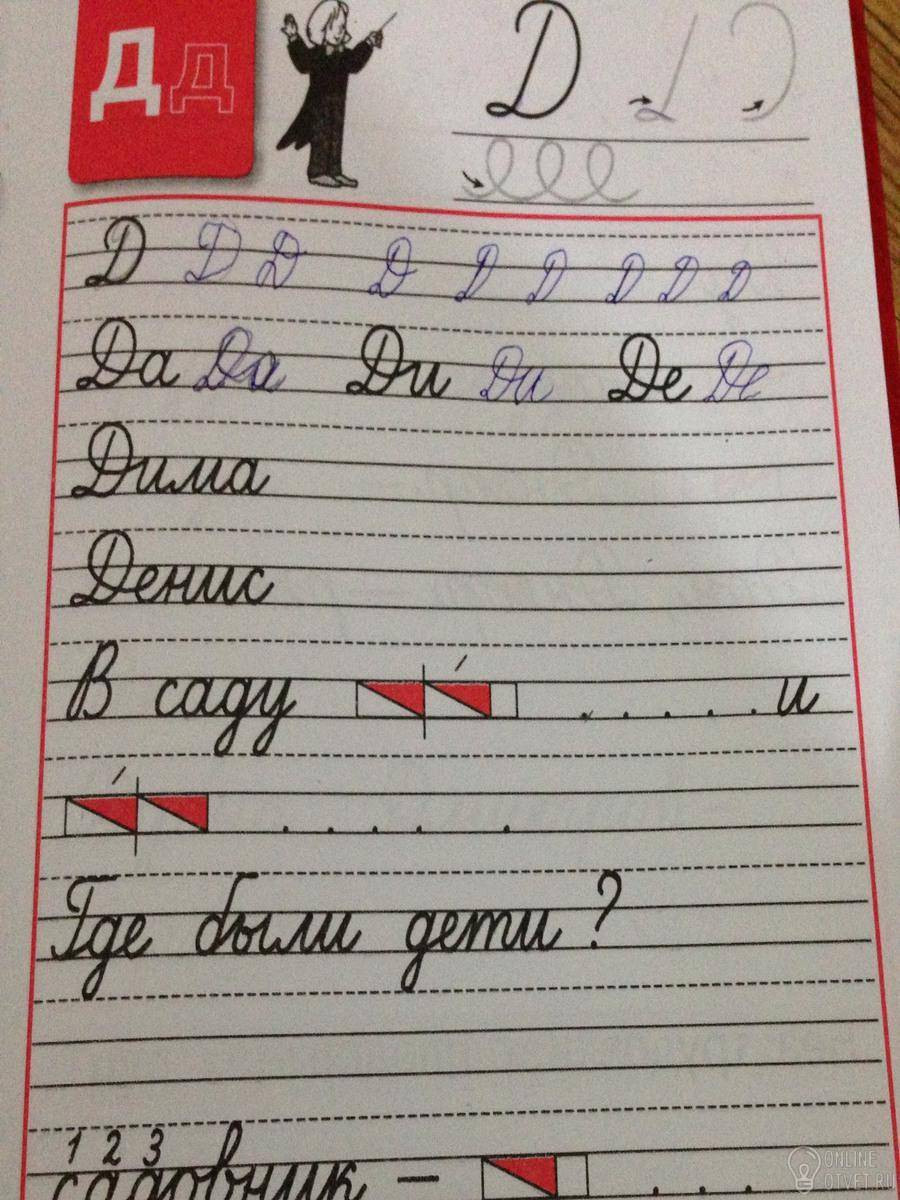 Дд Д
Д Д Д Д Д Д Д Д Д
Да Да Ди Ди Де Де
Дима
Денис
В саду . . . . . и
. . . . .
Где были дети?
1 2 3
садовник – . . .
ONLINE
OTVET.RU